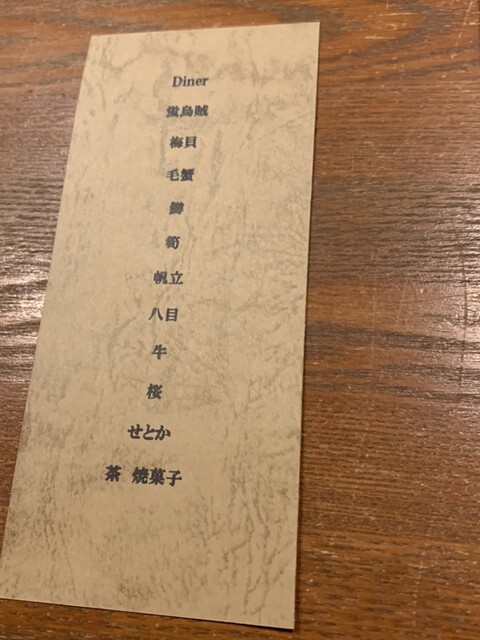 Diner
蛍烏賊
梅貝
毛蟹
鱒
筍
帆立
八目
牛
桜
せとか
茶 焼菓子